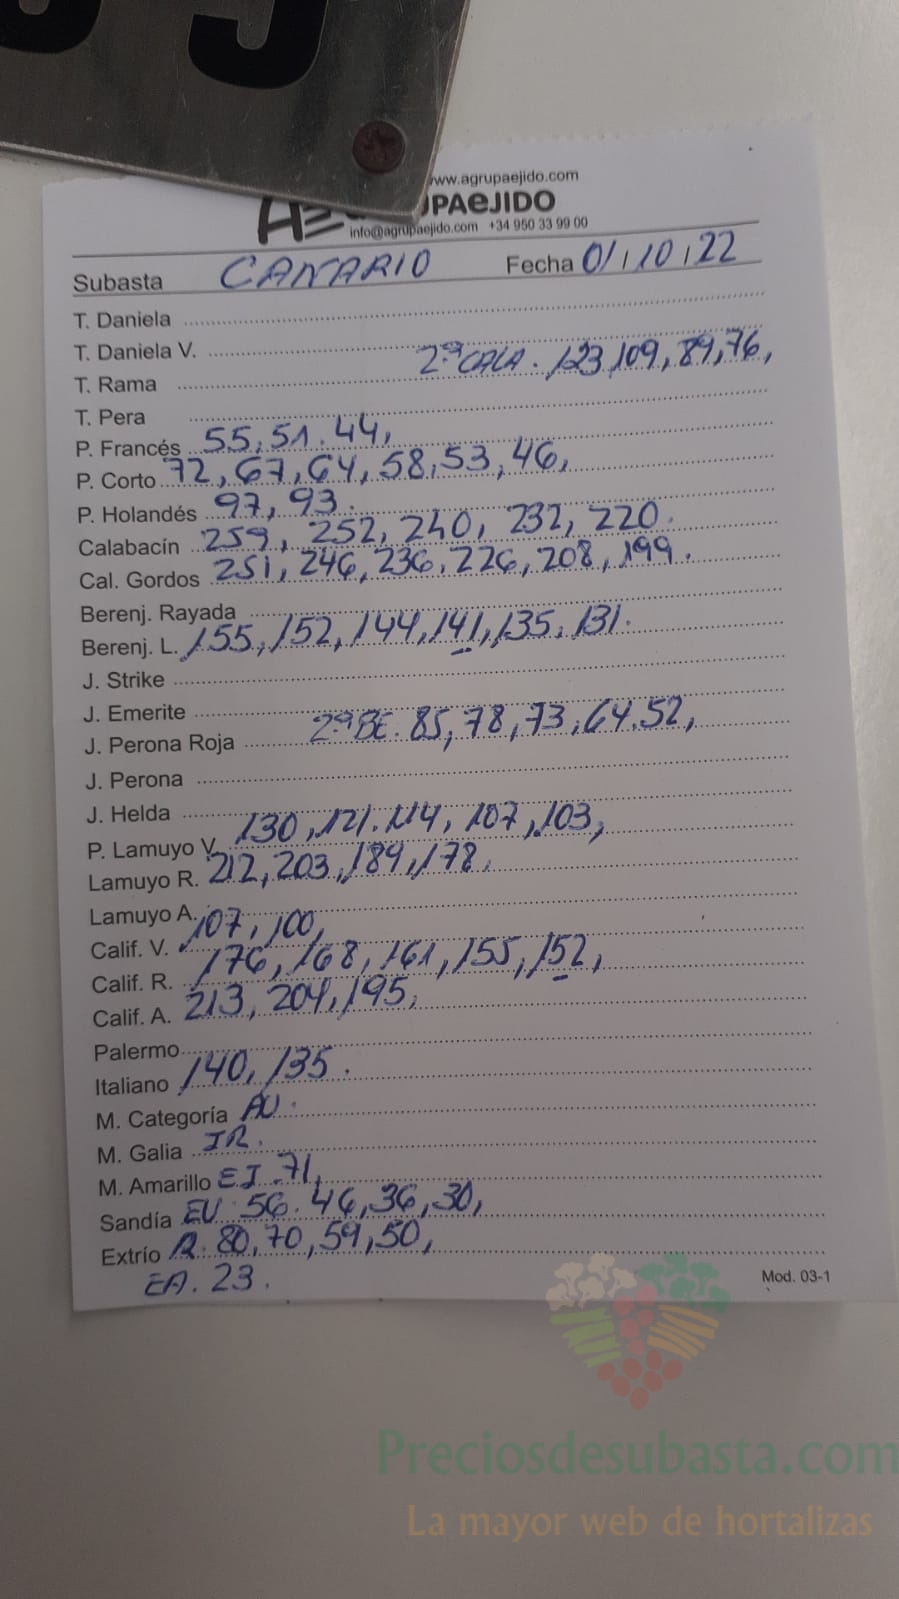 www.agrupaejido.com
UPAEJIDO
info@agrupaejido.com +34 950 33 99 00
Subasta CANARIO Fecha 01/10/22
T. Daniela
T. Daniela V.
T. Rama 2ª CALA. 123, 109, 89, 76,
T. Pera
P. Francés 55, 51. 44,
P. Corto 72, 67, 64, 58, 53, 46,
P. Holandés 97, 93.
Calabacín 259, 252, 240, 232, 220.
Cal. Gordos 251, 246, 236, 226, 208, 199.
Berenj. Rayada
Berenj. L. 155, 152, 144, 141, 135, 131.
J. Strike
J. Emerite
J. Perona Roja 2ª BE. 85, 78, 73, 64. 52,
J. Perona
J. Helda
P. Lamuyo V. 130, 121. 114, 107, 103,
Lamuyo R. 212, 203, 189, 178.
Lamuyo A.
Calif. V. 107, 100,
Calif. R. 176, 168, 161, 155, 152,
Calif. A. 213, 204, 195,
Palermo
Italiano 140, 135.
M. Categoría AU.
M. Galia IR.
M. Amarillo EJ. 71,
Sandía EU. 56. 46, 36, 30,
Extrío R. 80, 70, 59, 50,
EA. 23.
Mod. 03-1
Preciosdesubasta.com
La mayor web de hortalizas